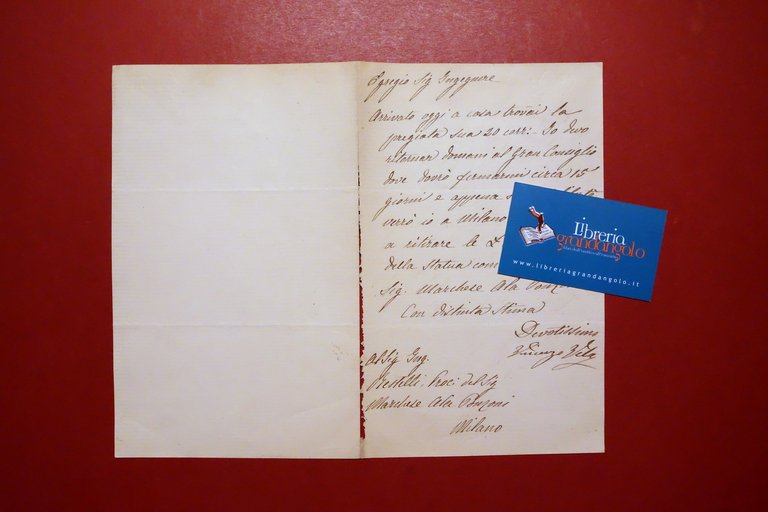 Egregio Sig Ingegnere
Arrivato oggi a casa trovai la
pregiata sua 20 corr:- Io devo
ritornar domani al Gran Consiglio
dove dovrò fermarmi circa 15
giorni e appena
verrò io a Milano
a ritirare le
della statua com
Sig. Marchese Ala Ponzo
Con distinta stima
Devotissimo
Vincenzo Vela
Al Sig Ing.
Proc: del Sig
Marchese Ala Ponzoni
Milano
Libreria
grandangolo
www.libreriagrandangolo.it